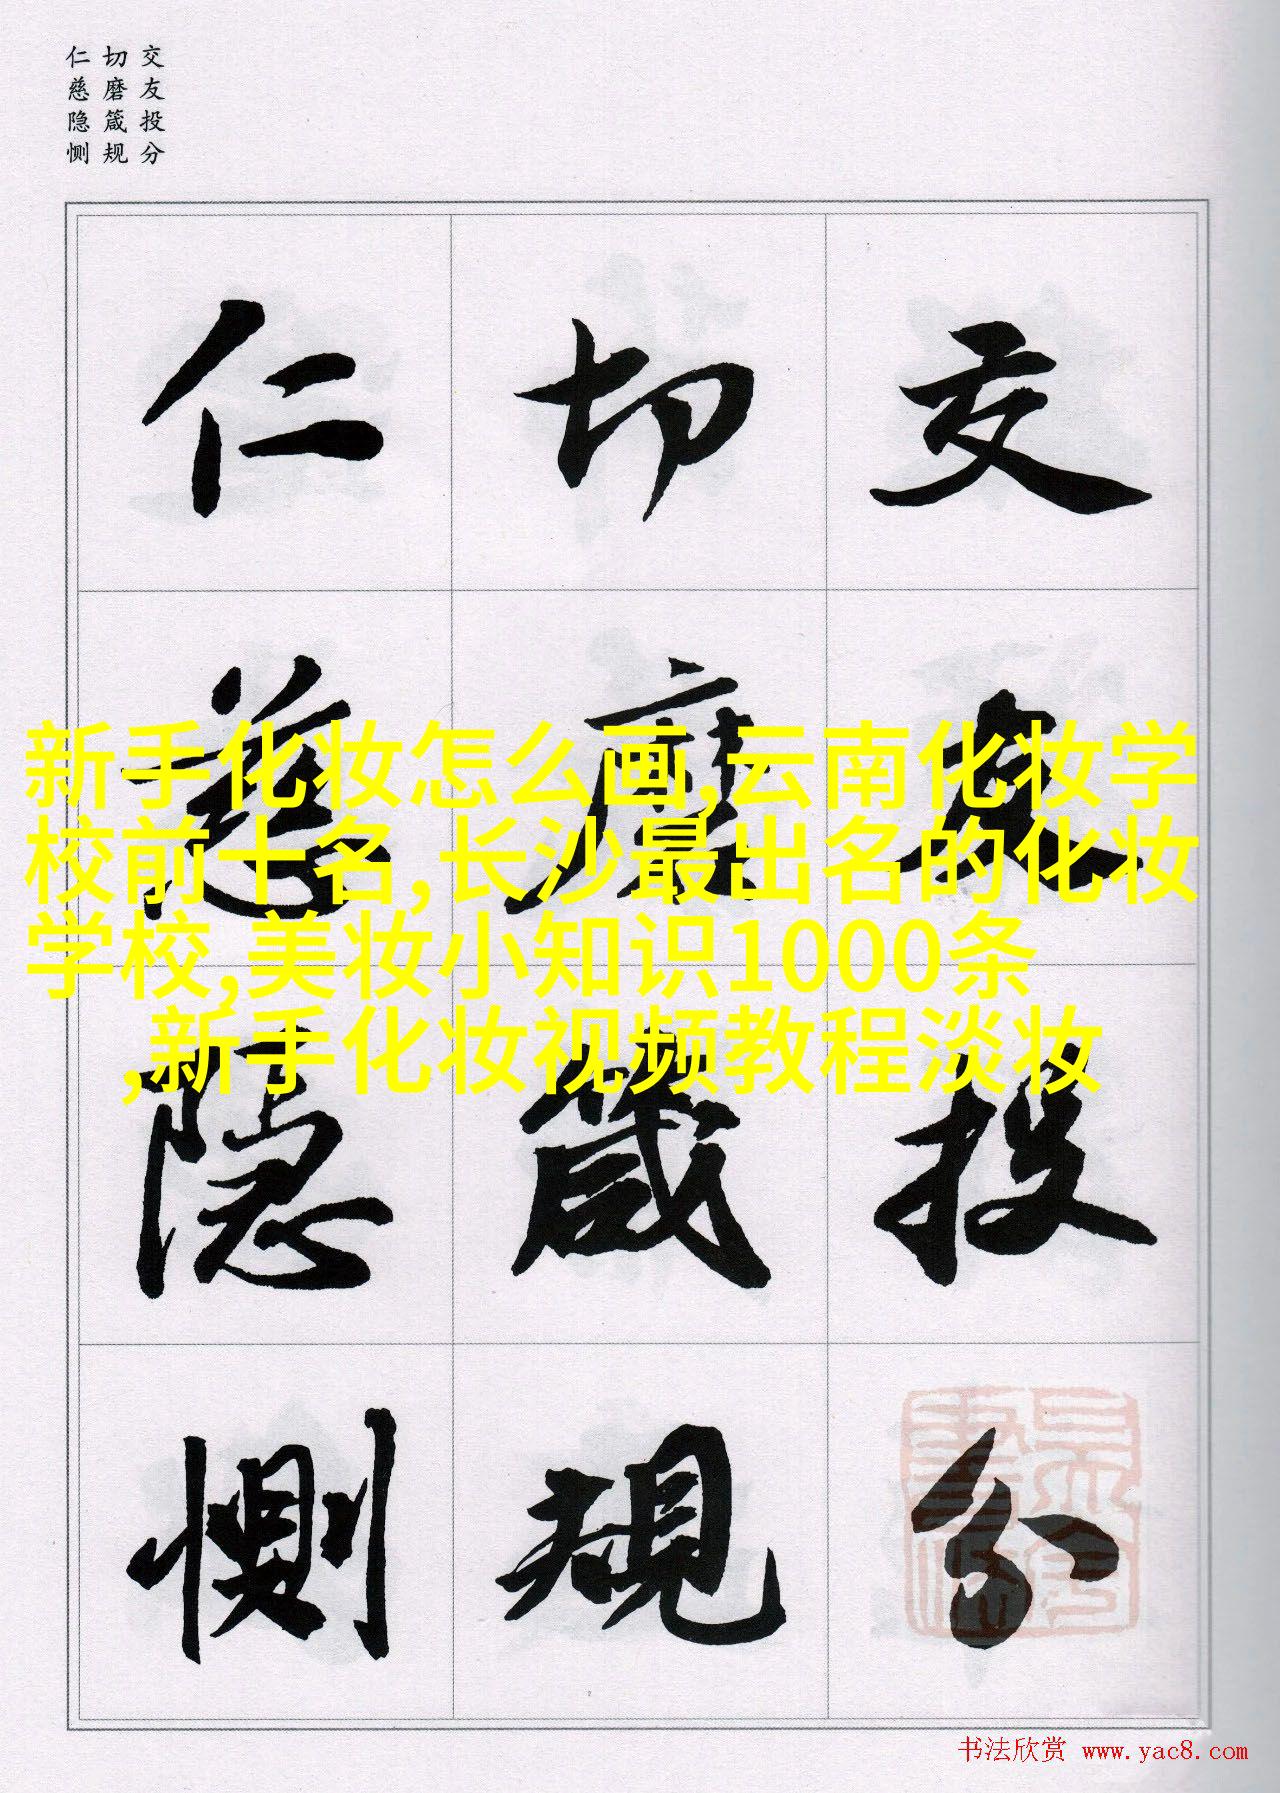 交友投分
切磨箴规
仁慈隐恻
交友投分
切磨箴规
仁慈隐恻
新手化妆怎么画,云南化妆学
校前十名,长沙最出名的化妆
学校,美妆小知识1000条
,新手化妆视频教程淡妆
书法欣赏 www.yac8.com